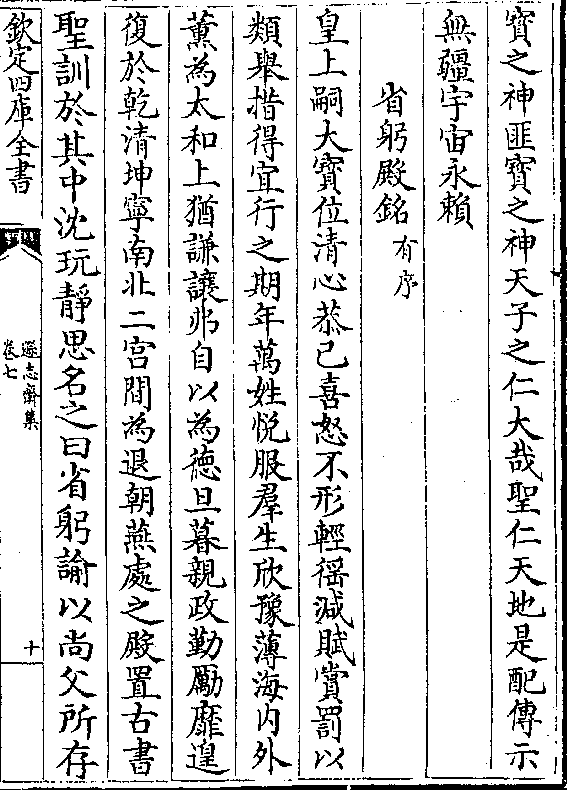 寳之神匪寳之神天子之仁大哉聖仁天地是配傳示
無疆宇宙永賴
省躬殿銘有序
皇上嗣大寳位清心恭己喜怒不形輕徭減賦賞罰以
類舉措得宜行之期年萬姓悦服羣生欣豫薄海内外
薫為太和上猶謙讓弗自以為徳旦暮親政勤勵靡遑
復於乾清坤寧南北二宫間為退朝燕處之殿置古書
聖訓於其中沈玩靜思名之曰省躬諭以尚父所存
欽定四庫全書
遜志齋集
卷七
十